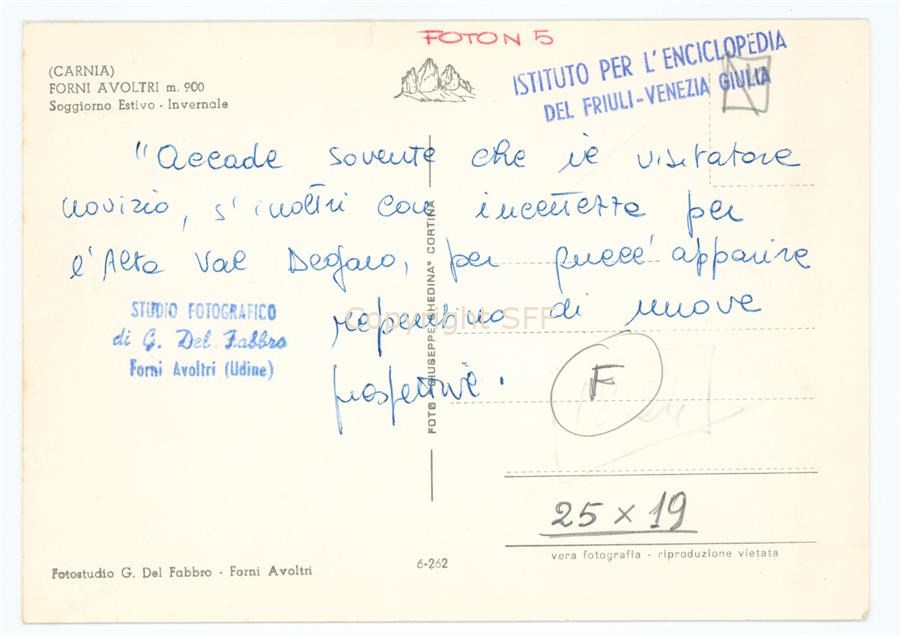 FOTO N 5
(CARNIA)
FORNI AVOLTRI m. 900
Soggiorno Estivo - Invernale
ISTITUTO PER L'ENCICLOPEDIA
DEL FRIULI-VENEZIA GIULIA
"Accade sovente che il visitatore
novizio, s'inoltri con incertezza per
l'Alta Val Degano, per quell'apparire
repentino di nuove
prospettive.
STUDIO FOTOGRAFICO
di G. Del Fabbro
Forni Avoltri (Udine)
FOTO "GIUSEPPE GHEDINA" CORTINA
Copyright SFF
F
25 x 19
vera fotografia - riproduzione vietata
Fotostudio G. Del Fabbro - Forni Avoltri
6-262